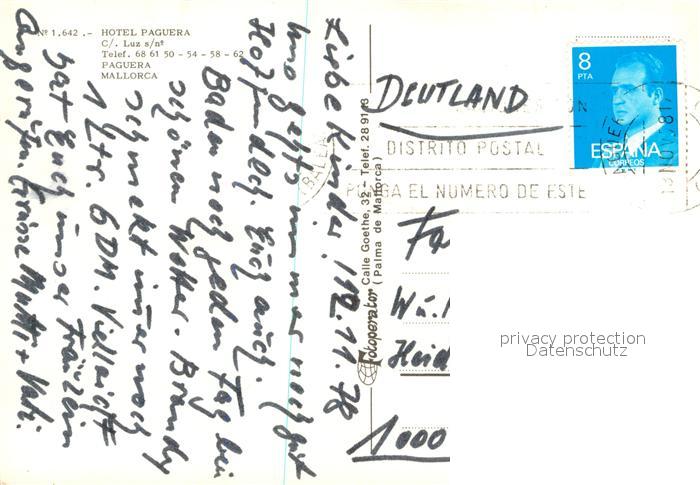 Nº 1.642 .- HOTEL PAGUERA
C/. Luz s/nº
Telef. 68 61 50 - 54 - 58 - 62
PAGUERA
MALLORCA
Liebe Kinder! 12.11.78
Uns geht's immer noch gut
Hoffendlich Euch auch.
Baden noch jeden Tag bei
schönem Wetter. Brandy
schmekt immer noch
1 Ltr. 6 DM. Vielleicht
hat Euch unser Fräulein
angerufen Grüsse Mutti + Vati.
Fotoperator Calle Goethe, 32 - Telef. 28 91 19
(Palma de Mallorca)
DEUTLAND
8
PTA
ESPAÑA
CORREOS
DISTRITO POSTAL
PONGA EL NUMERO DE ESTE
Fa
Wil
Heid
1000
privacy protection
Datenschutz